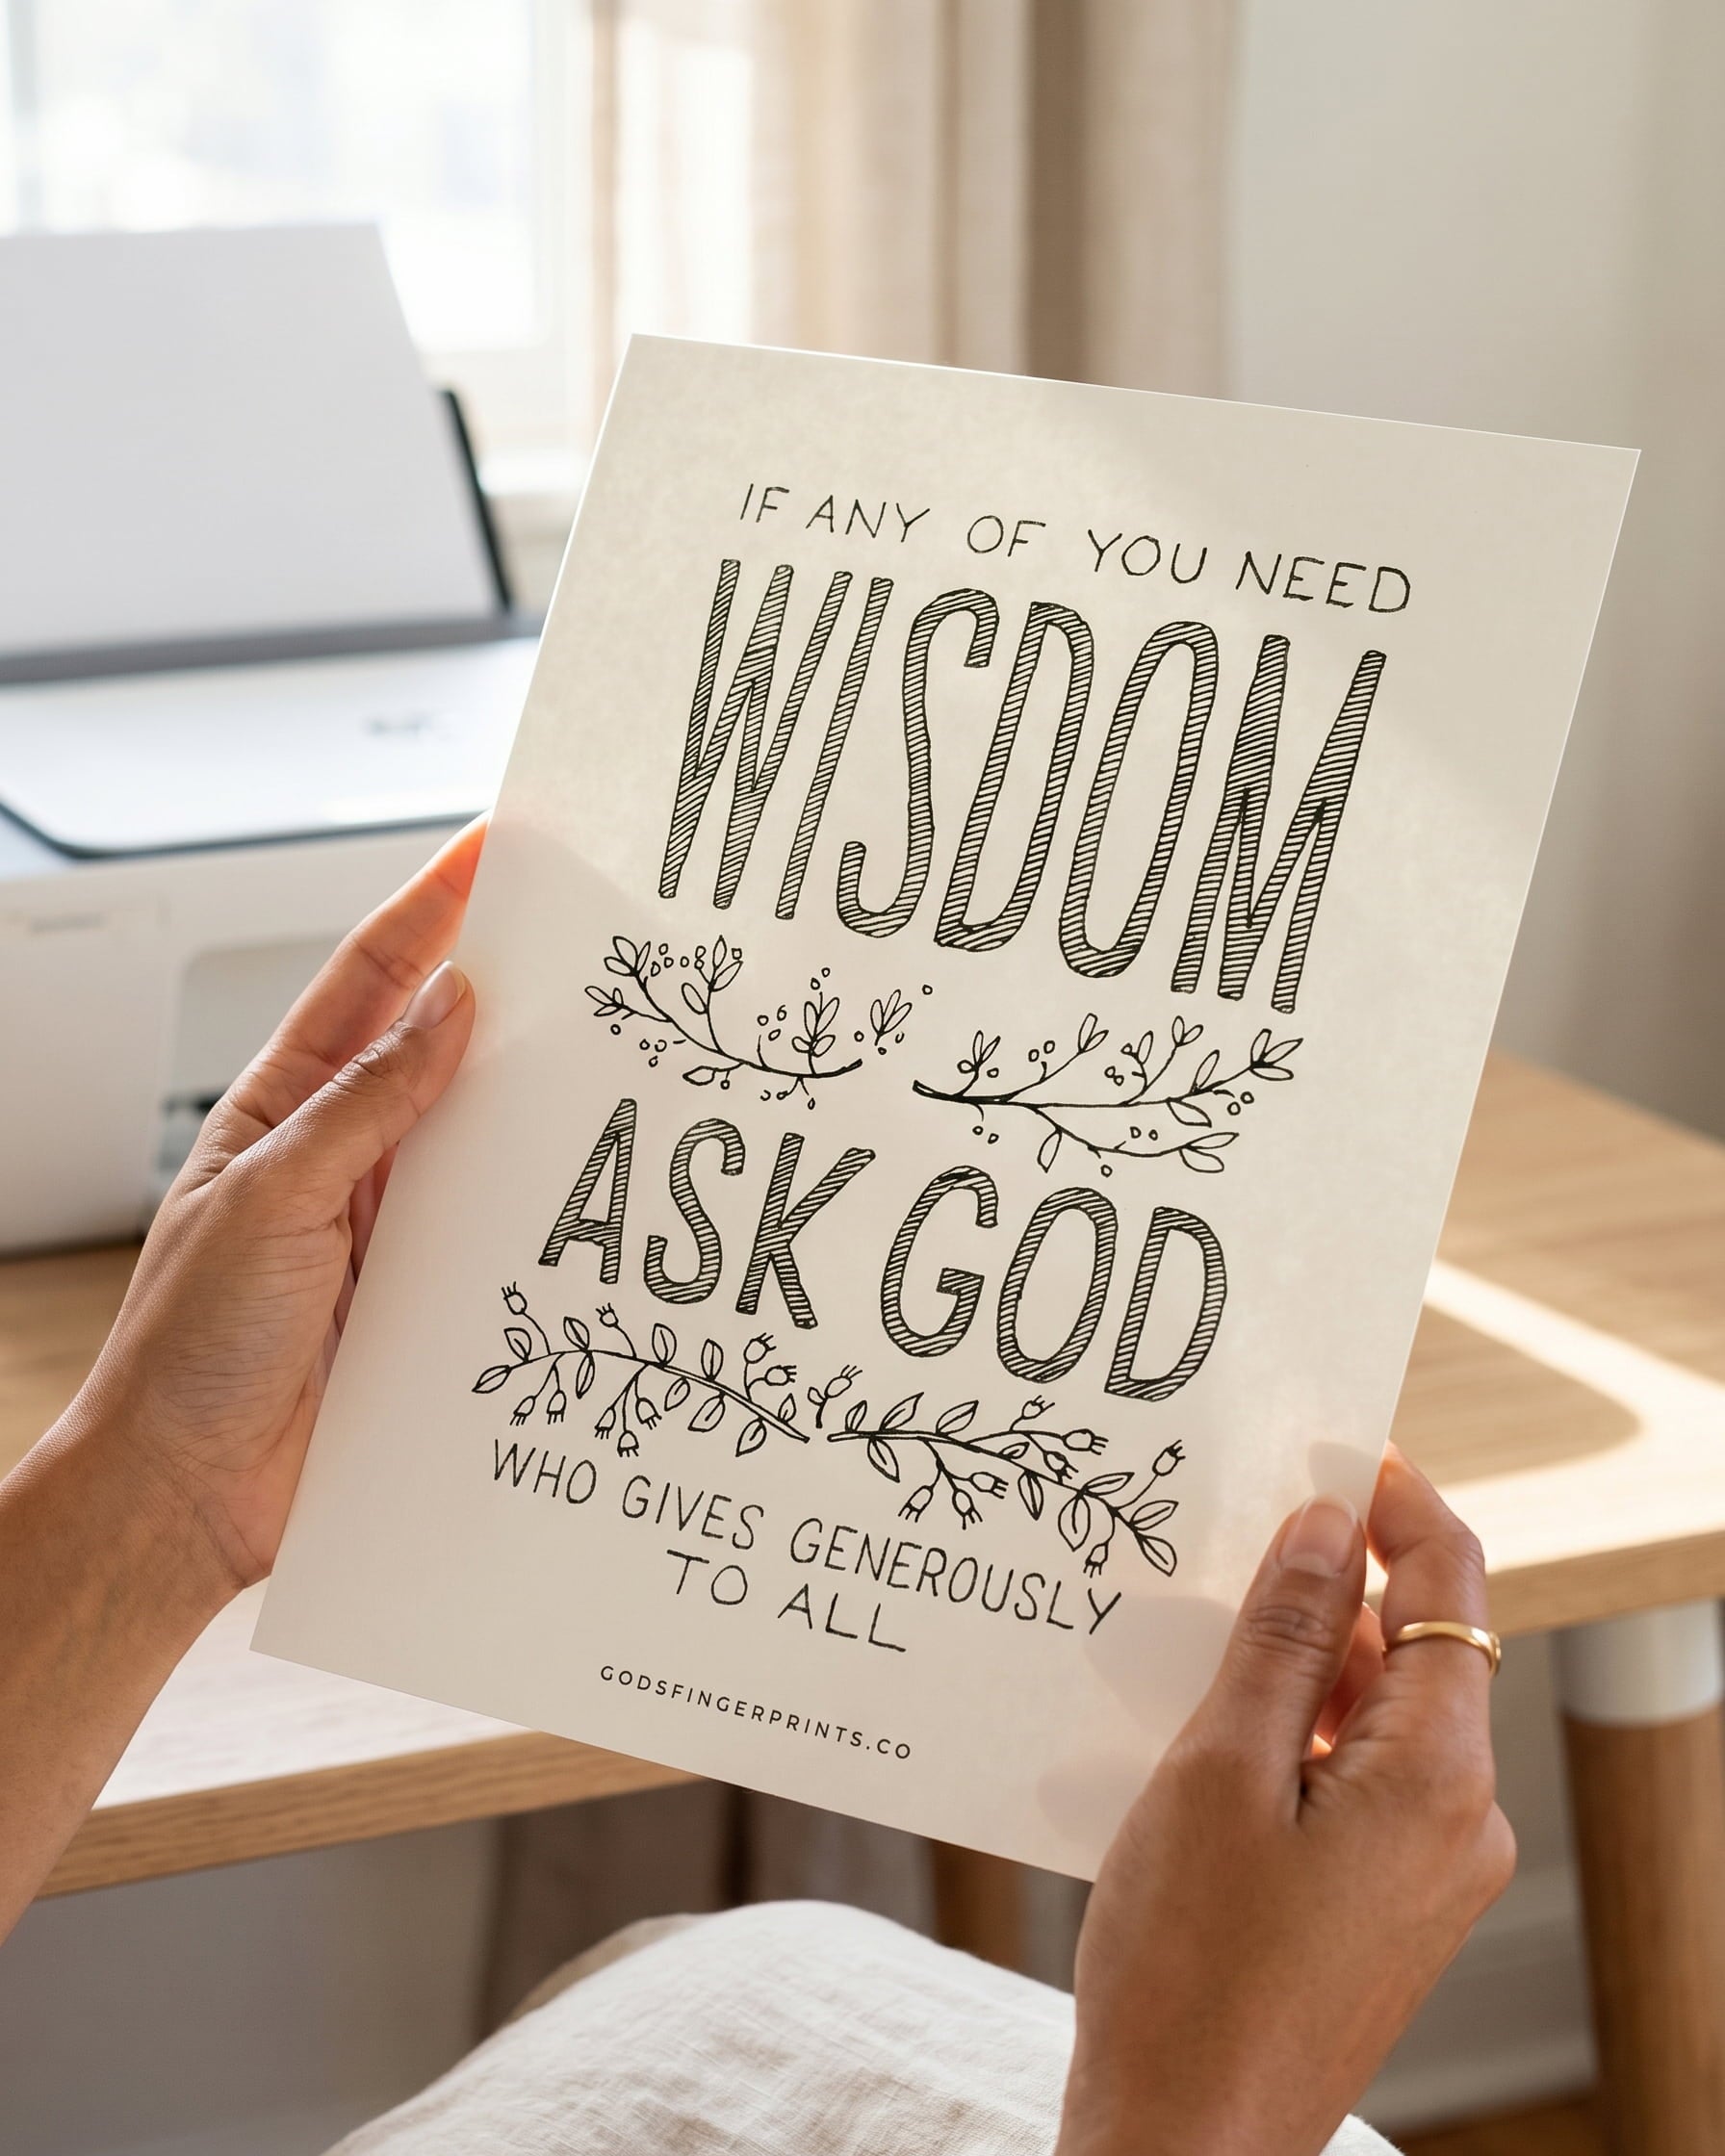 IF ANY OF YOU NEED
WISDOM
ASK GOD
WHO GIVES GENEROUSLY
TO ALL
GODSFINGERPRINTS.CO